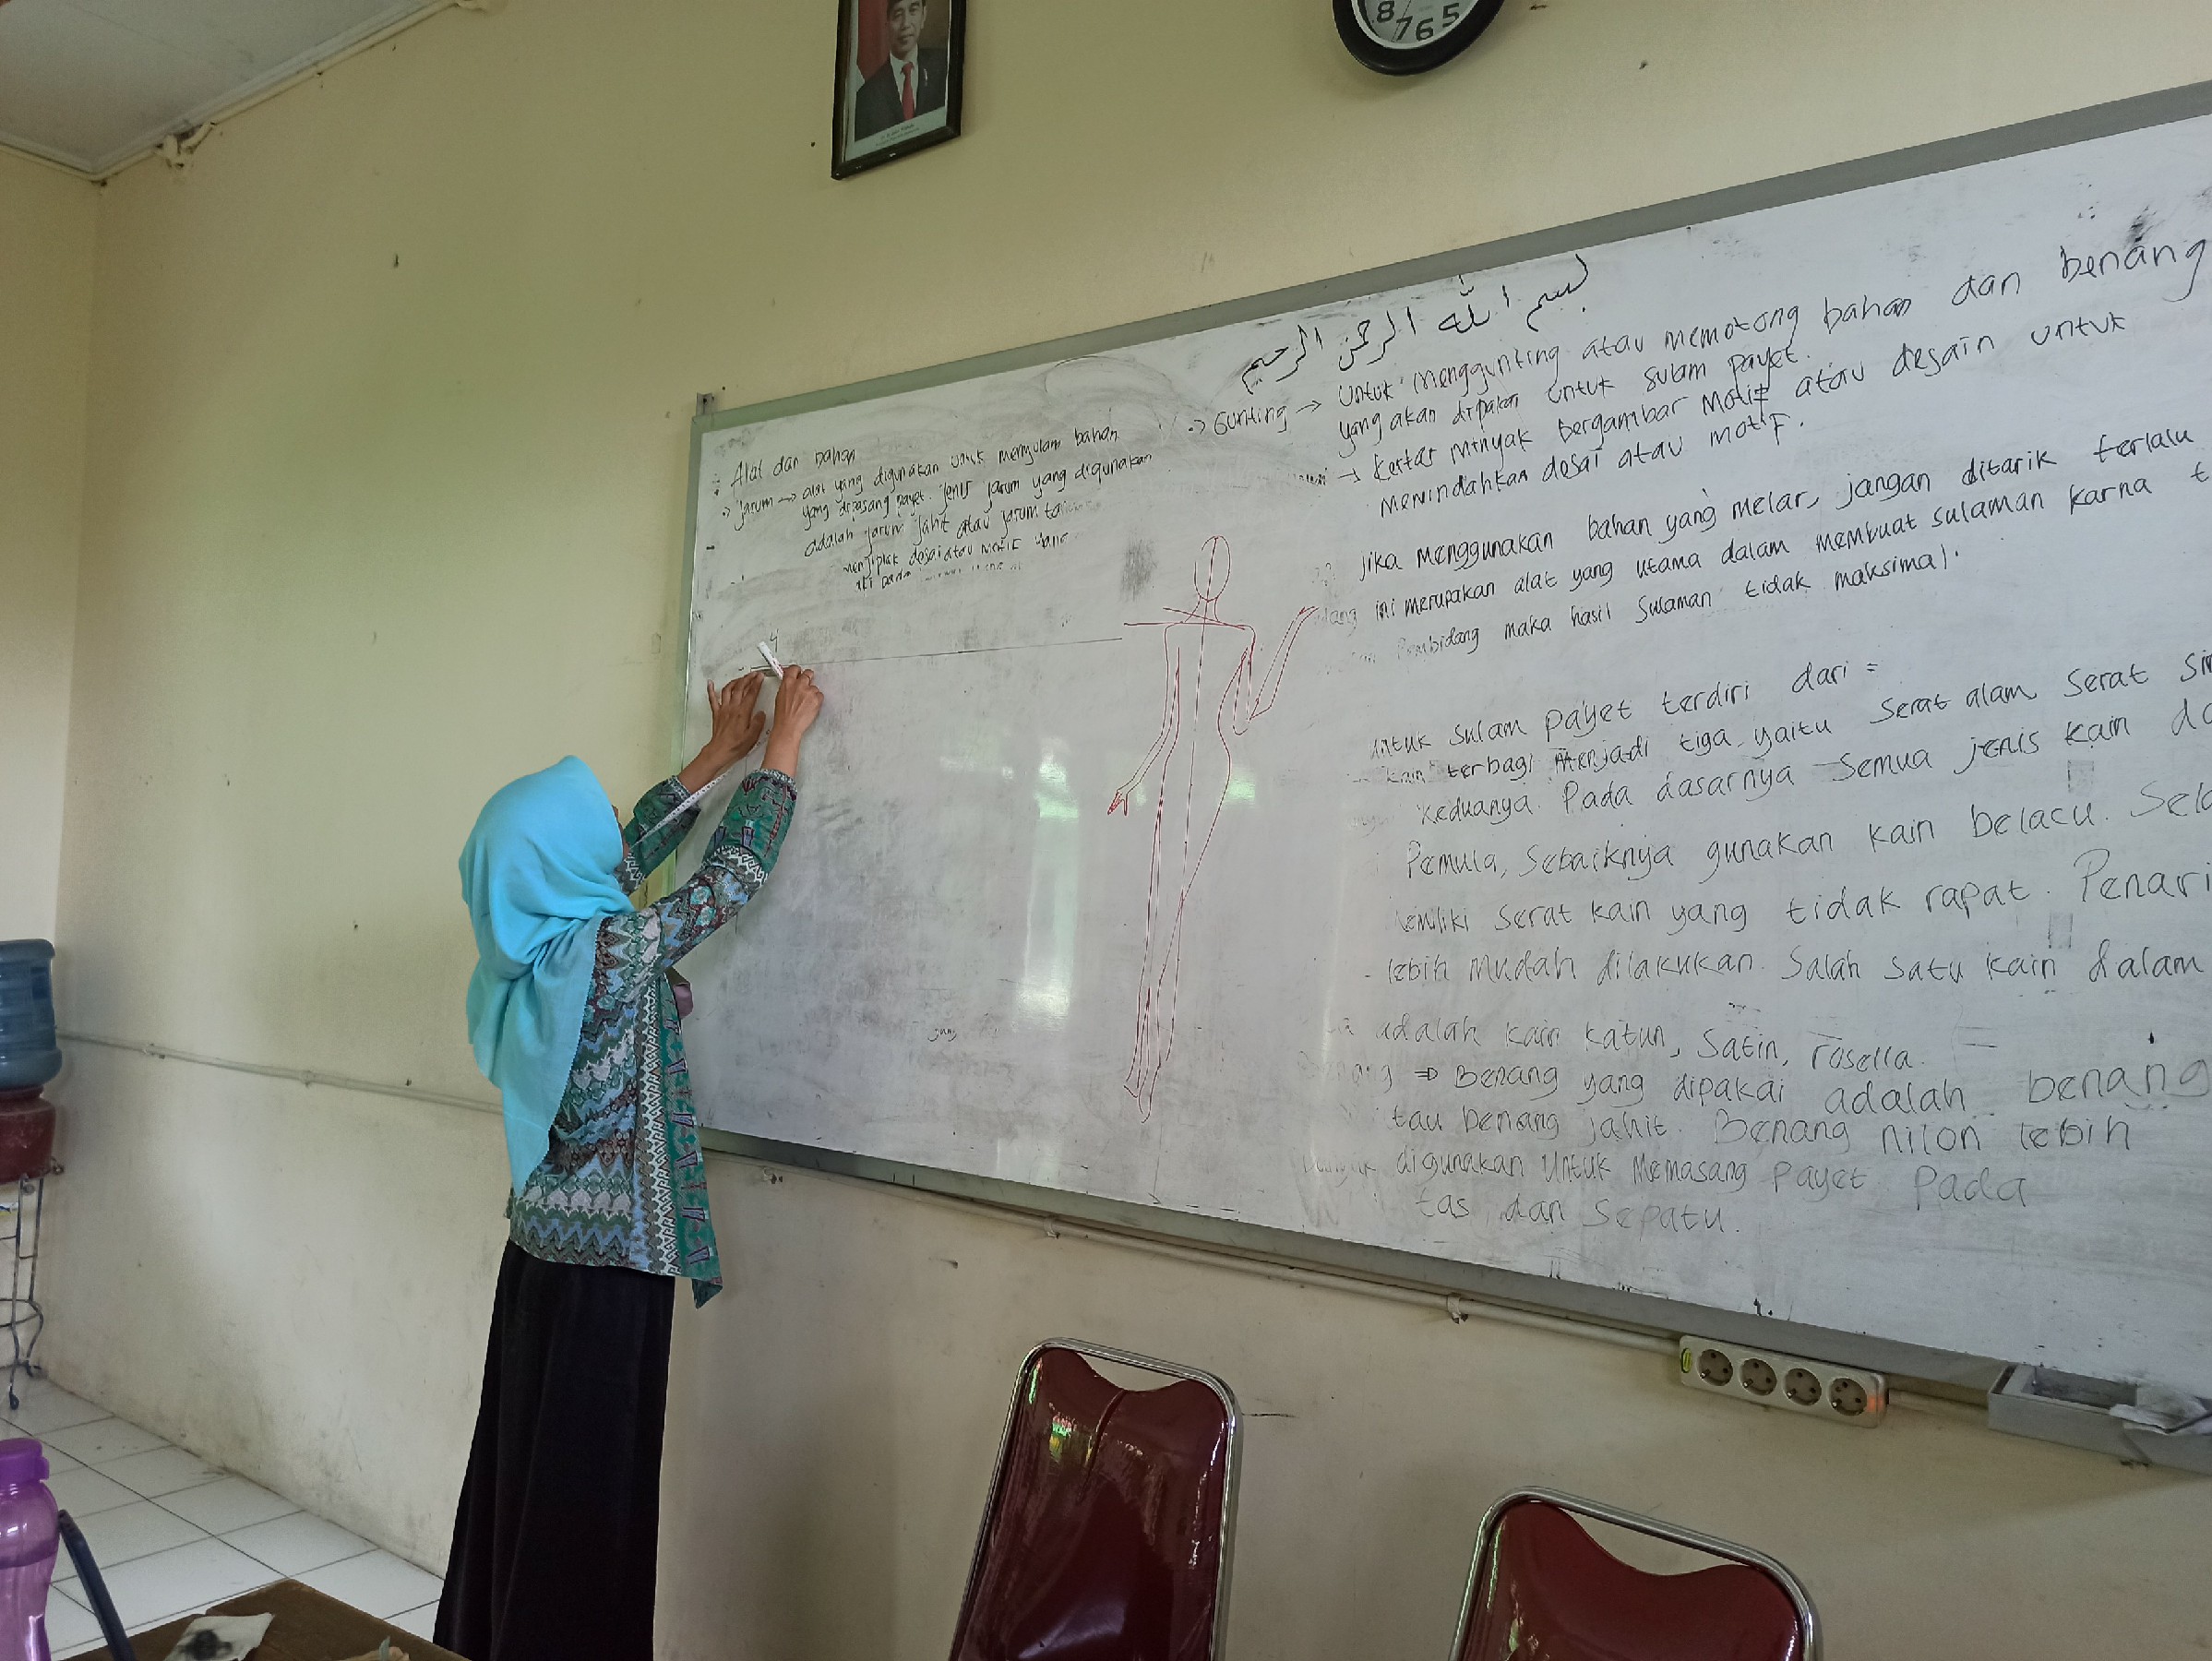 8 7 6 5
بسم الله الرحمن الرحيم
Alat dan bahan
Jarum → alat yang digunakan untuk menyulam bahan
yang dipasang payet. Jenis jarum yang digunakan
adalah jarum jahit atau jarum
menjiplak desai atau motif yang
pada
4
Gunting → Untuk menggunting atau memotong bahan dan benang
yang akan dipakai untuk sulam payet.
→ kertas minyak bergambar motif atau desain untuk
memindahkan desai atau motif.
jika menggunakan bahan yang melar, jangan ditarik terlalu
ini merupakan alat yang utama dalam membuat sulaman karna
Pembidang maka hasil sulaman tidak maksimal.
untuk sulam payet terdiri dari =
kain terbagi menjadi tiga yaitu serat alam serat
keduanya. Pada dasarnya semua jenis kain
Pemula, sebaiknya gunakan kain belacu.
memiliki serat kain yang tidak rapat.
lebih mudah dilakukan. Salah satu kain dalam
adalah kain katun, satin, rosella.
⇒ Benang yang dipakai adalah benang
tau benang jahit. Benang nilon lebih
digunakan untuk memasang payet pada
tas dan sepatu.